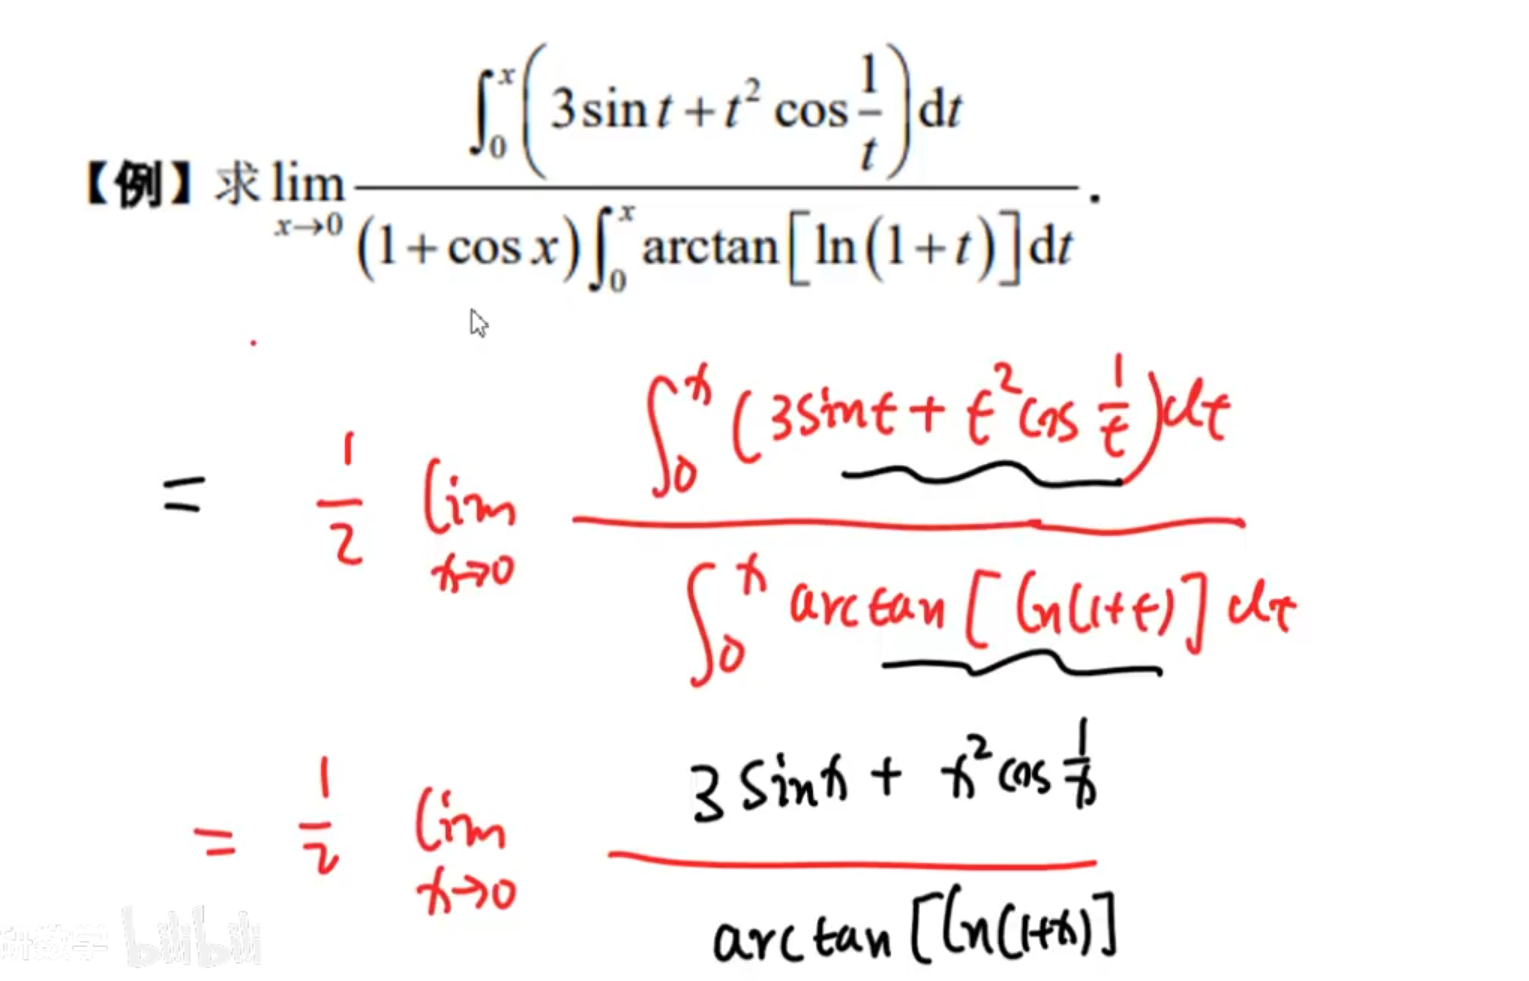 【例】求 lim_{x→0} \frac{∫_0^x (3 sin t + t² cos \frac{1}{t}) dt}{(1+cos x)∫_0^x arctan[ln(1+t)]dt}.
= \frac{1}{2} lim_{x→0} \frac{∫_0^x (3sint + t² cos \frac{1}{t})dt}{∫_0^x arctan[ln(1+t)]dt}
= \frac{1}{2} lim_{x→0} \frac{3 sinx + x² cos \frac{1}{x}}{arctan[ln(1+x)]}
研数学 bilibili